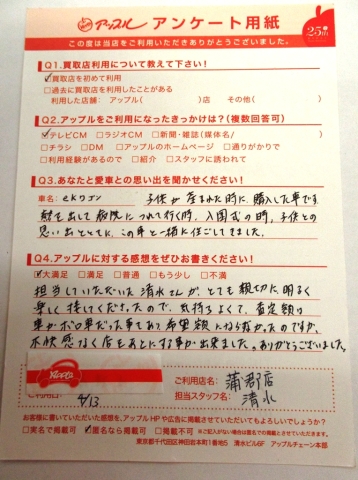 アップル アンケート用紙
25th
この度は当店をご利用いただきありがとうございました。
Q1.買取店利用について教えて下さい!
☑買取店を初めて利用
□過去に買取店を利用したことがある
利用した店舗: アップル( )店 その他( )
Q2.アップルをご利用になったきっかけは?(複数回答可)
☑テレビCM □ラジオCM □新聞・雑誌(媒体名/ )
□チラシ □DM □アップルのホームページ □通りがかりで
□利用経験があるので □紹介 □スタッフに誘われて
Q3.あなたと愛車との思い出を聞かせください!
車名: eKワゴン 子供が産まれた時に、購入した車です
熱を出して病院につれて行く時、入園式の時、子供との
思い出とともに、この車と一緒に過ごしてきました。
Q4.アップルに対する感想をぜひお書きください!
☑大満足 □満足 □普通 □もう少し □不満
担当していただいた清水さんが、とても親切に、明るく
楽しく接してくださったので、気持ちよくて、査定額は
車がボロ車だった事もあり希望額にならなかったのですが、
不快感なく店をあとにする事が出来ました。ありがとうございました。
Apple
4/13
ご利用店名: 蒲郡店
担当スタッフ名: 清水
お客様に書いていただいた感想を、アップルHPや広告に掲載させていただいてもよろしいでしょうか?
□実名で掲載可 ☑匿名なら掲載可 □掲載不可 ※ご記入がない場合は匿名での掲載とさせていただきます。
東京都千代田区神田岩本町1番地5 清水ビル6F アップルチェーン本部